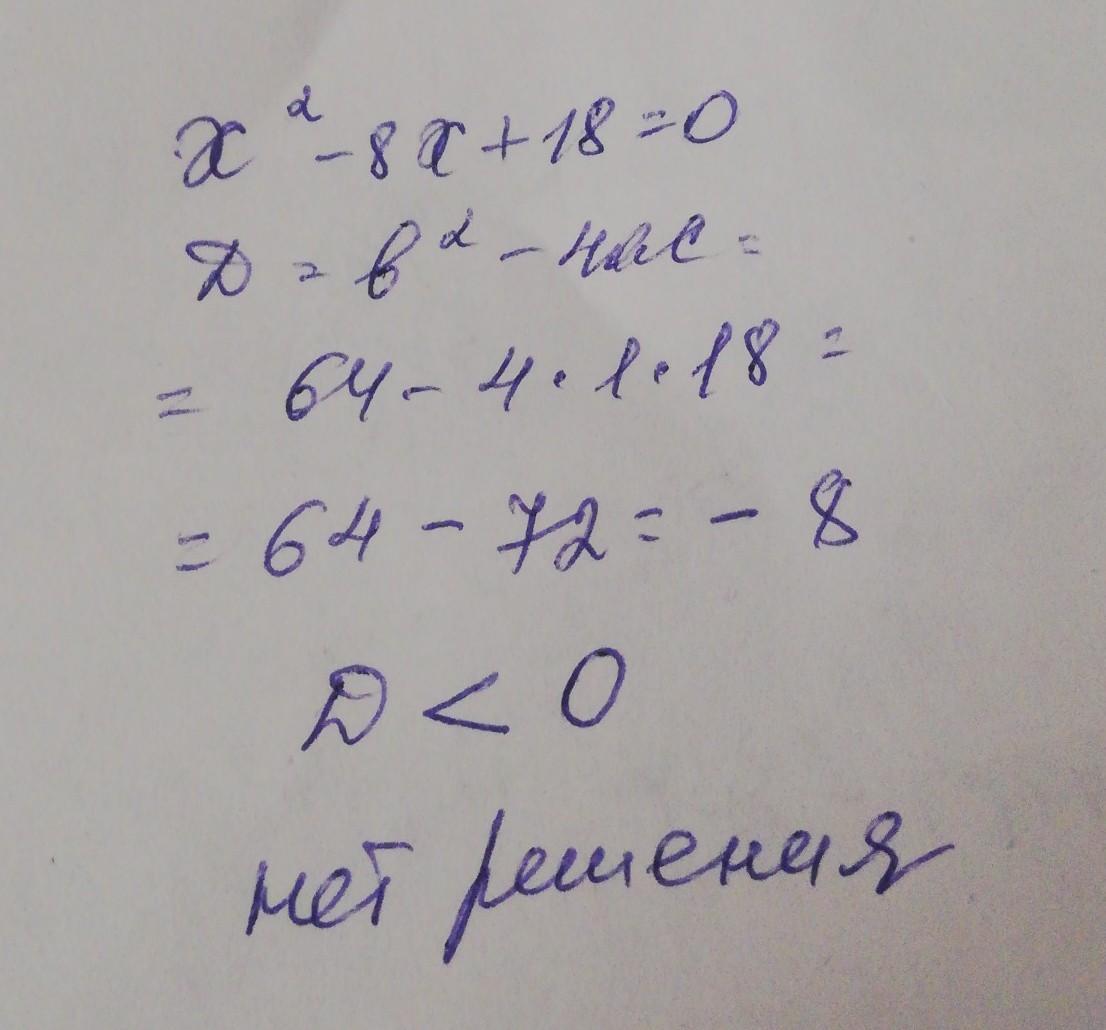 x² - 8x + 18 = 0
D = b² - 4ac =
= 64 - 4 · 1 · 18 =
= 64 - 72 = - 8
D < 0
нет решения